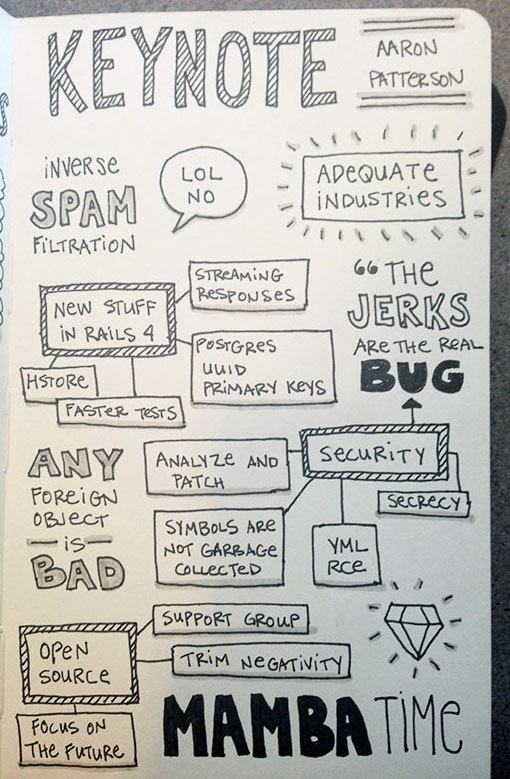 KEYNOTE
AARON
PATTERSON
INVERSE
SPAM
FILTRATION
LOL
NO
ADEQUATE
INDUSTRIES
NEW STUFF
IN RAILS 4
STREAMING
RESPONSES
POSTGRES
UUID
PRIMARY KEYS
HSTORE
FASTER TESTS
“THE
JERKS
ARE THE REAL
BUG
ANY
FOREIGN
OBJECT
— is —
BAD
SECURITY
ANALYZE AND
PATCH
SYMBOLS ARE
NOT GARBAGE
COLLECTED
YML
RCE
SECRECY
OPEN
SOURCE
SUPPORT GROUP
TRIM NEGATIVITY
FOCUS ON
THE FUTURE
MAMBA TIME